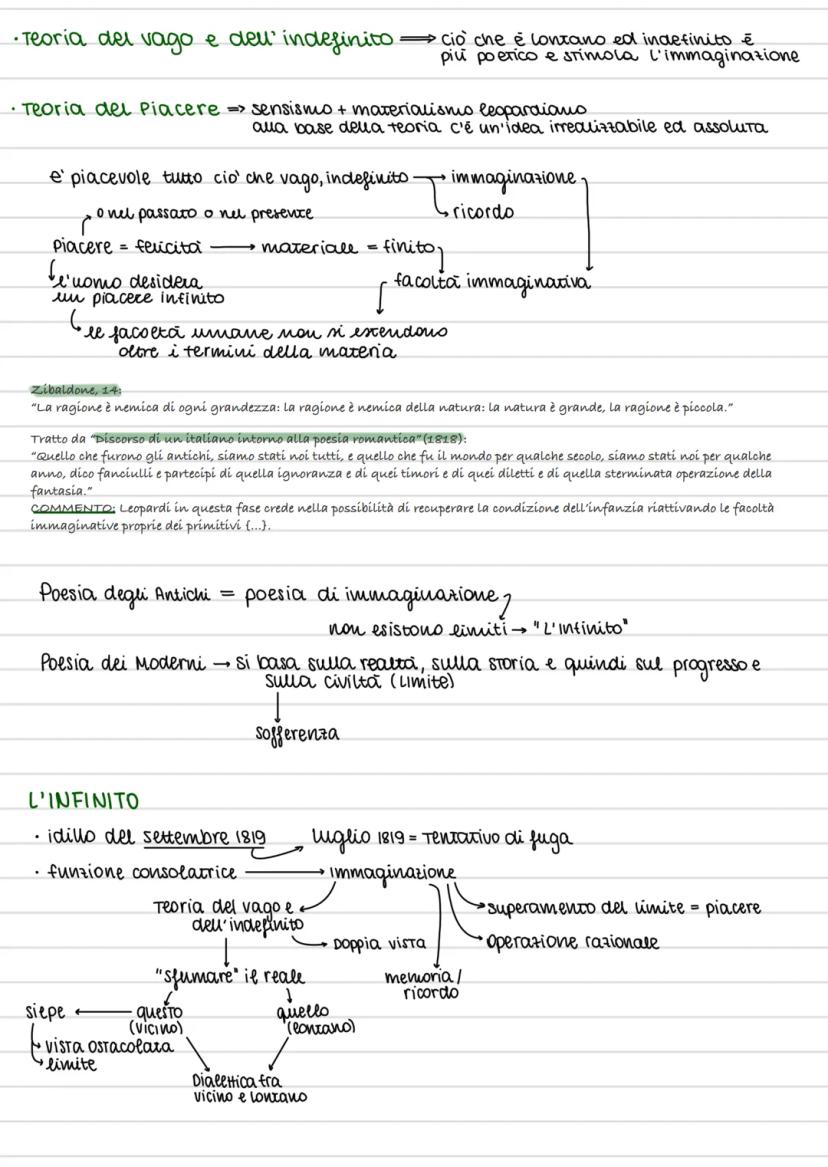 · Teoria del vago e dell'indefinito ⟹ ciò che è lontano ed indefinito è
più poetico e stimola l'immaginazione
· Teoria del Piacere ⇒ sensismo + materialismo leopardiano
alla base della teoria c'è un'idea irrealizzabile ed assoluta
e' piacevole tutto cio' che vago, indefinito → immaginazione
→ ricordo
o nel passato o nel presente
Piacere = felicità → materiale = finito
l'uomo desidera
un piacere infinito
facoltà immaginativa
le facoltà umane non si estendono
oltre i termini della materia
Zibaldone, 14:
"La ragione è nemica di ogni grandezza: la ragione è nemica della natura: la natura è grande, la ragione è piccola."
Tratto da "Discorso di un italiano intorno alla poesia romantica" (1818):
"Quello che furono gli antichi, siamo stati noi tutti, e quello che fu il mondo per qualche secolo, siamo stati noi per qualche
anno, dico fanciulli e partecipi di quella ignoranza e di quei timori e di quei diletti e di quella sterminata operazione della
fantasia."
COMMENTO: Leopardi in questa fase crede nella possibilità di recuperare la condizione dell'infanzia riattivando le facoltà
immaginative proprie dei primitivi {...}.
Poesia degli Antichi = poesia di immaginazione
non esistono limiti → "L'Infinito"
Poesia dei Moderni → si basa sulla realtà, sulla storia e quindi sul progresso e
sulla civiltà (limite)
sofferenza
L'INFINITO
· idillo del settembre 1819 → luglio 1819 = Tentativo di fuga
· funzione consolatrice → immaginazione
Teoria del vago e
dell'indefinito
→ superamento del limite = piacere
→ Doppia vista
→ operazione razionale
"sfumare" il reale
memoria/
ricordo
siepe ← questo
(vicino)
quello
(lontano)
→ vista ostacolata
→ limite
Dialettica fra
vicino e lontano